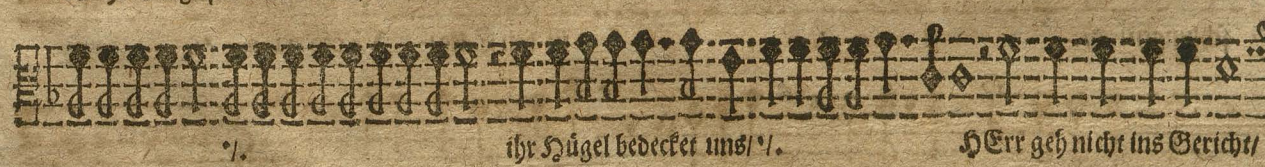 ·/. ihr Hügel bedecket uns/ ·/. HErr geh nicht ins Gericht/